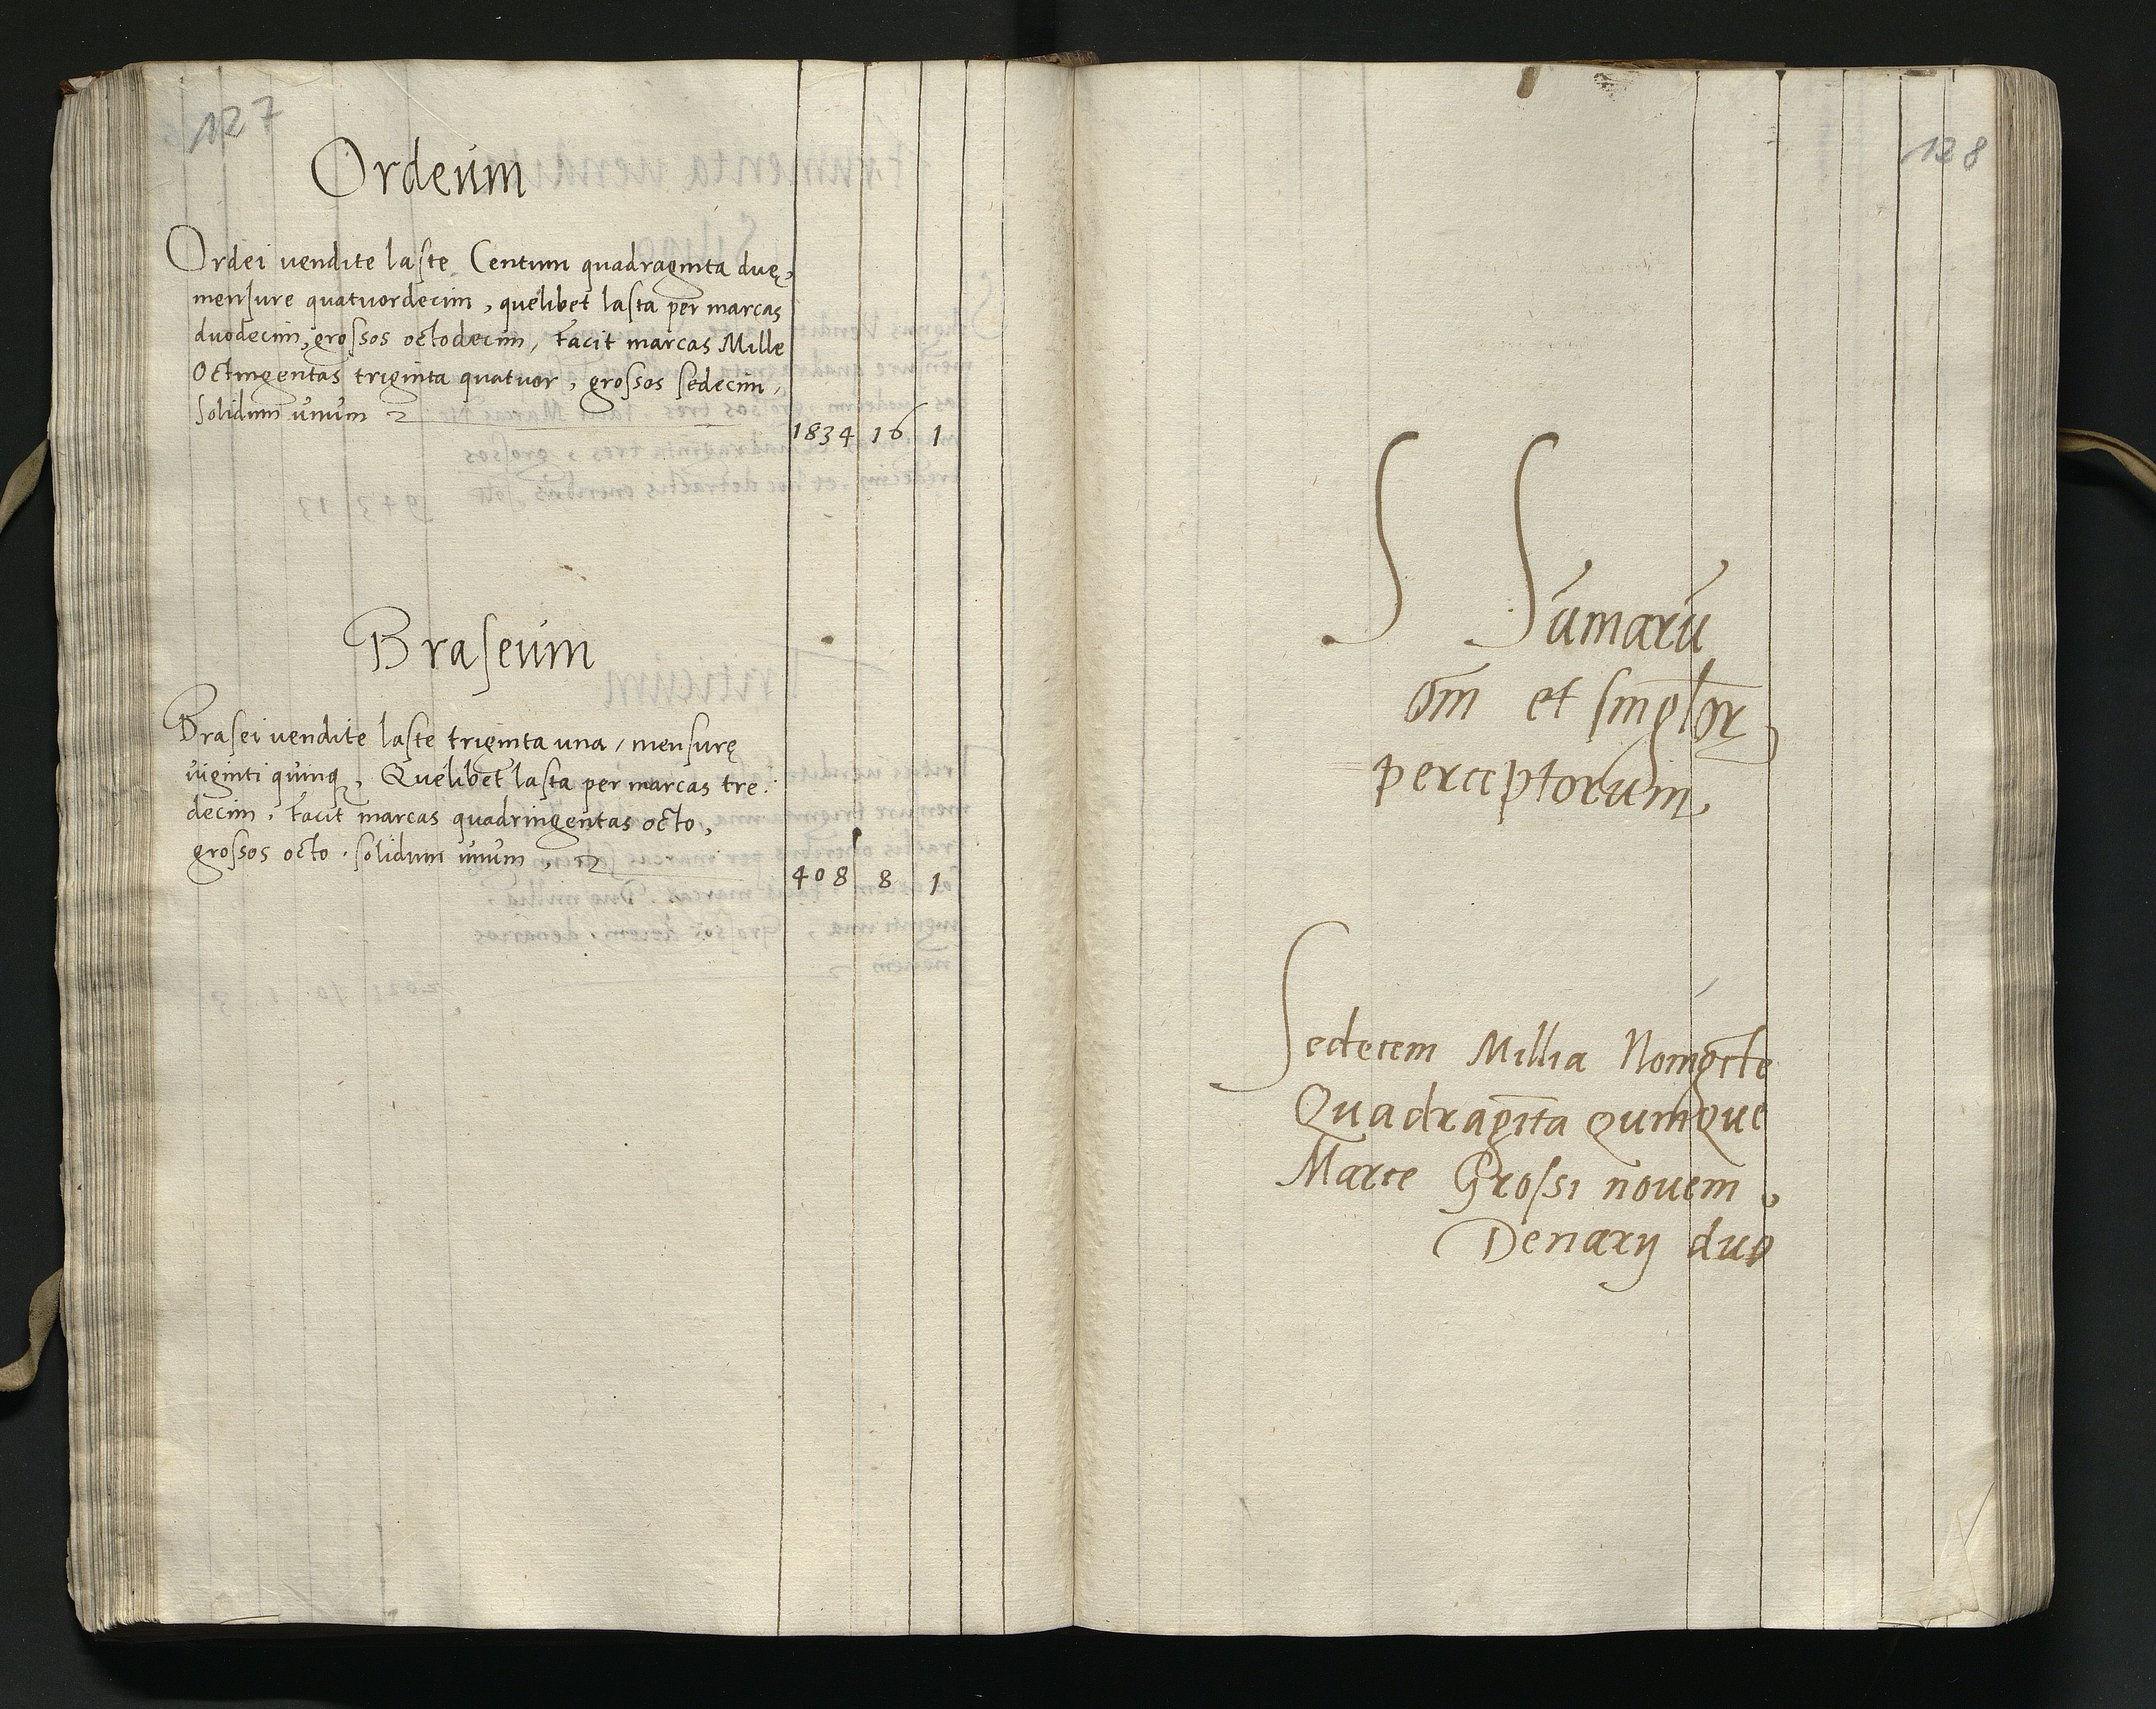 127
Ordeum
Ordei vendite laste Centum quadraginta duę,
mensure quatuordecim, quelibet lasta per marcas
duodecim, grossos octodecim, facit marcas Mille
Octingentas triginta quatuor, grossos sedecim,
solidum unum 1834 16 1
Braseum
Brasei vendite laste triginta una, mensurę
viginti quinq, Quelibet lasta per marcas tre:
decim, facit marcas quadringentas octo,
grossos octo, solidum unum, 408 8 1
128
S Sūmarū
om̄ et singlor̄
perceptorum,
Sedecem Millia Nomgc̄te
Quadragīta Qumque
Marce Grossi novem,
Denarij duo